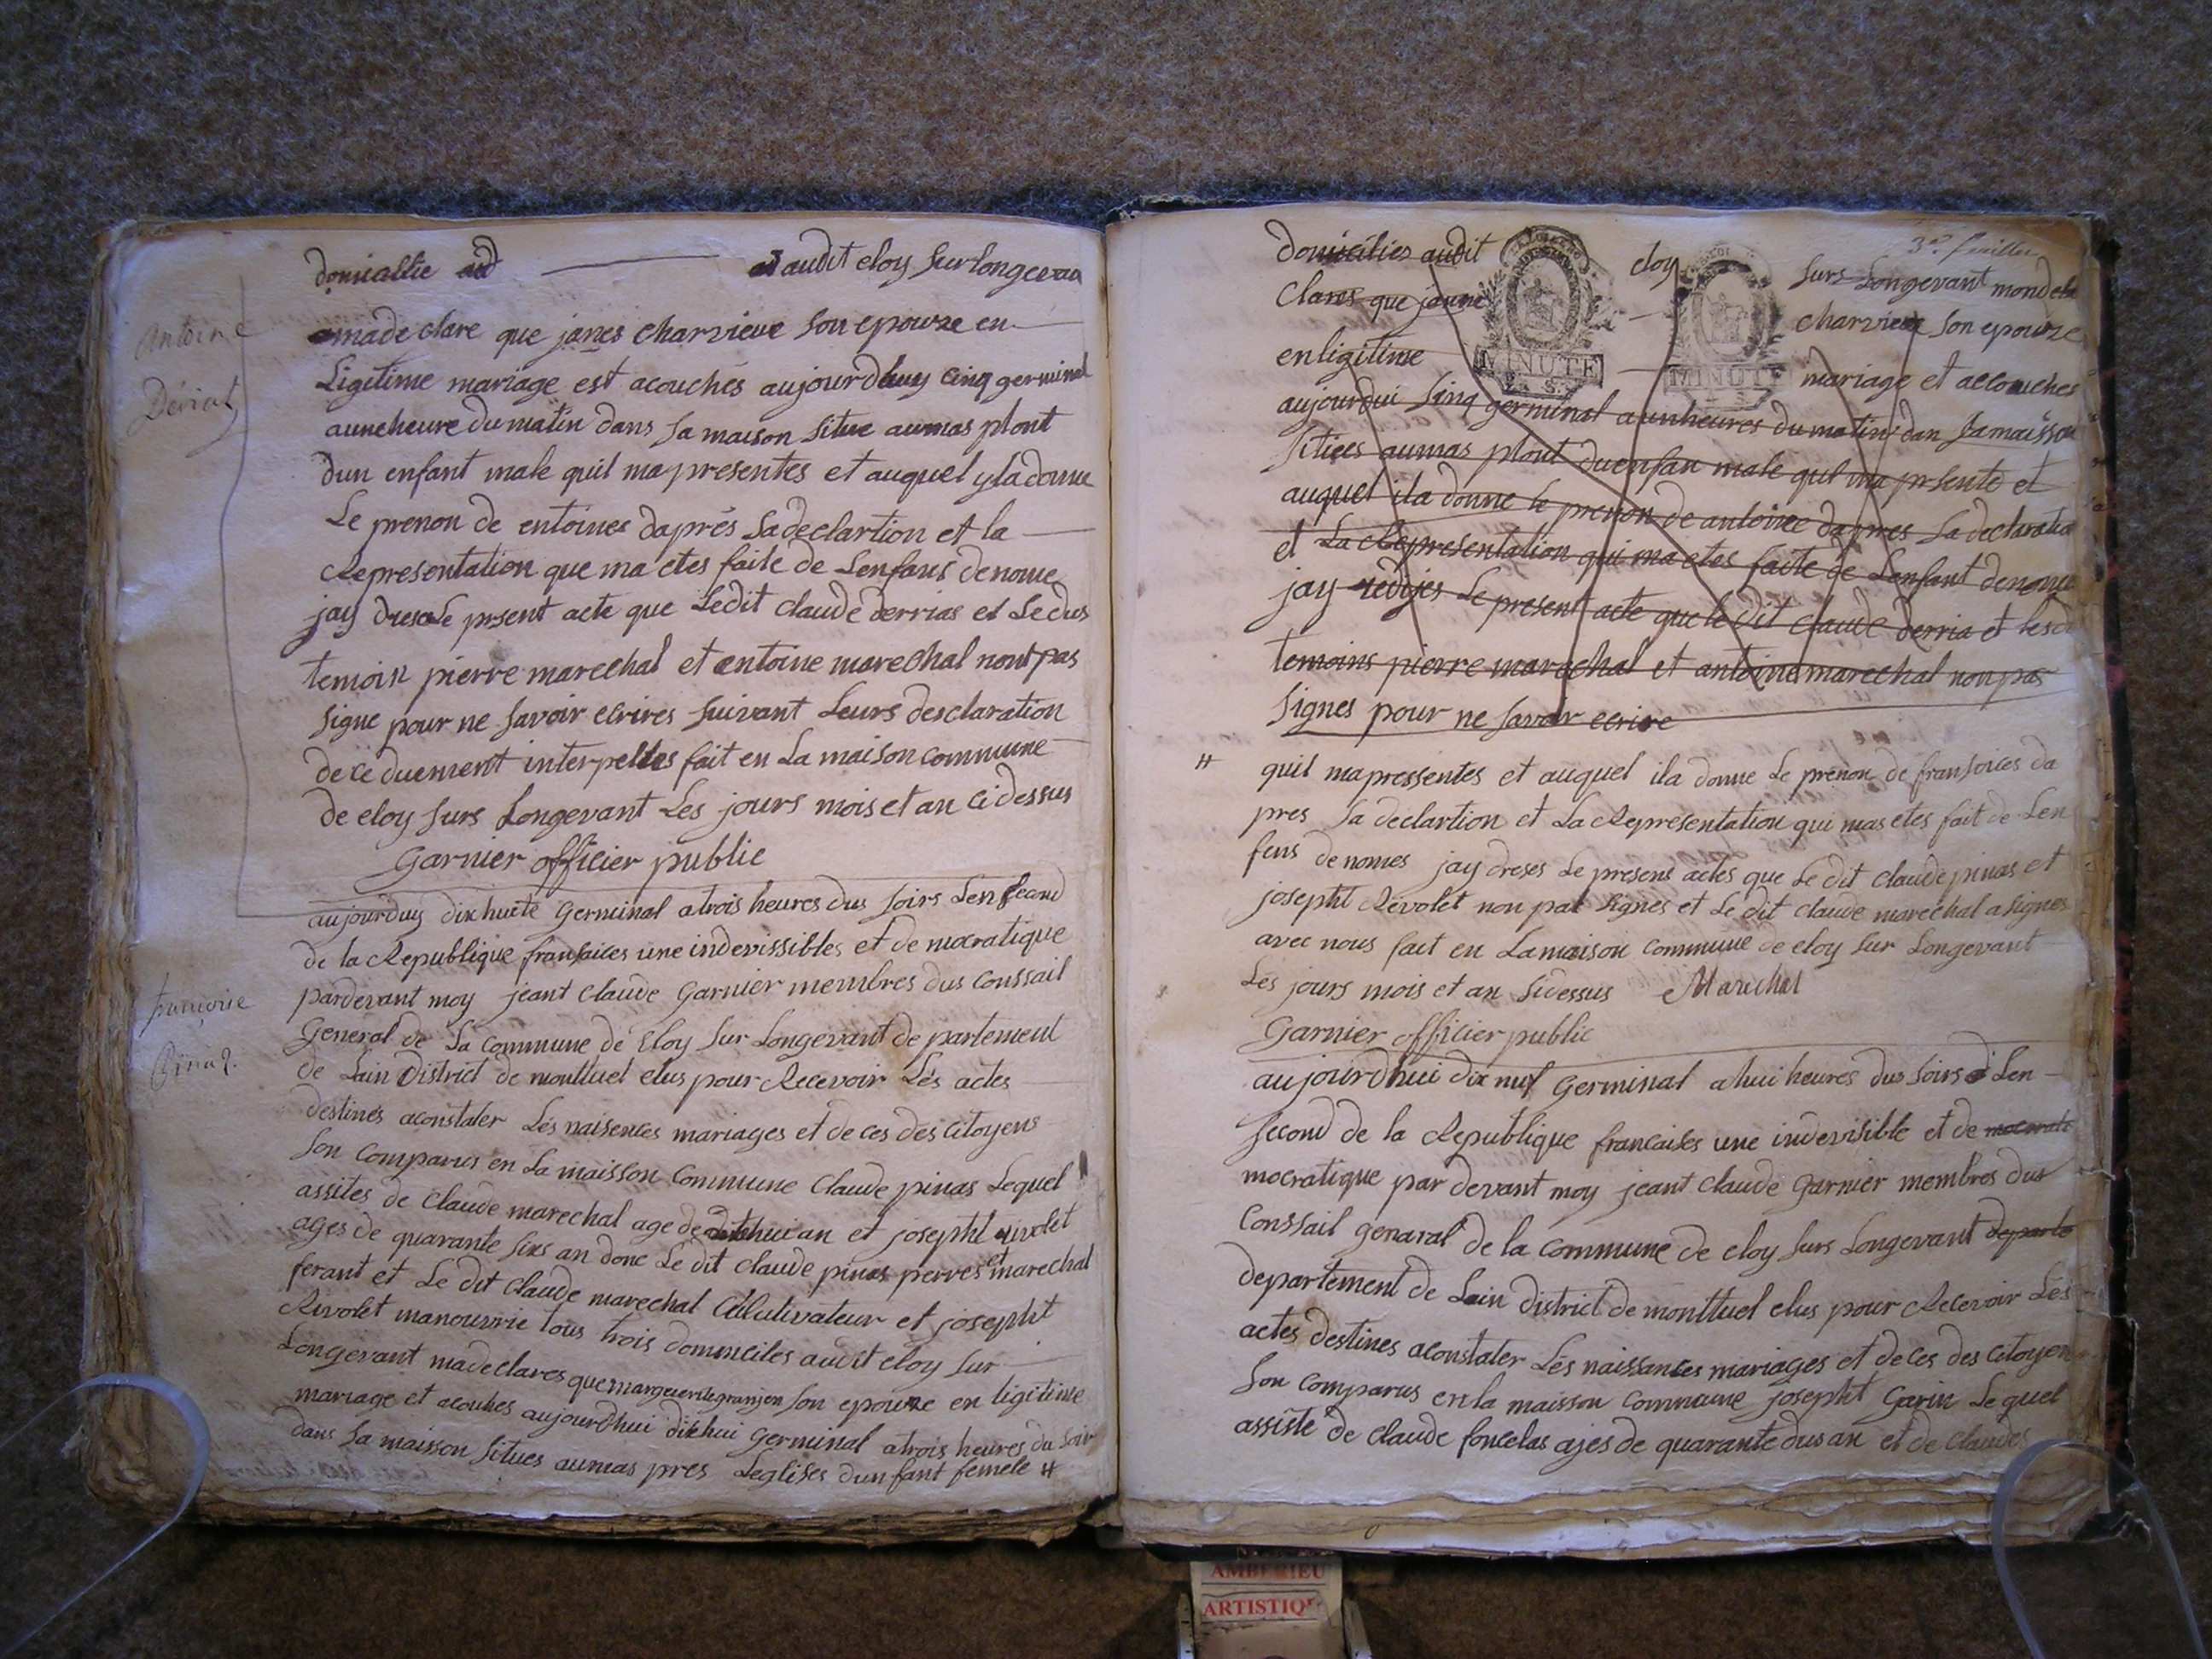 domicallie aud audit eloy sur longevan
Antoine
Dériat
ma de clare que janes charvieue son epouze en
Ligitime mariage est acouchés aujourdhuy cinq germinal
aune heure du matin dans sa maison situe au mas plont
dun enfant male quil ma presentes et auquel yla donne
Le prenon de entoines daprés sa declartion et la
Representation que ma etes faite de Lenfans denome
jay drese Le prsent acte que Ledit claude derrias et Lesdus
temoin pierre marechal et entoine marechal nont pas
signe pour ne savoir ecrires suivant Leurs desclaration
de ce duement interpelles fait en La maison commune
de eloy surs Longevant Les jours mois et an ci dessus
Garnier officier public
aujourduy dix huite Germinal a trois heures dus soirs Len second
de la Republique fransaices une indevissibles et de mocratique
pardevant moy jeant claude Garnier membres dus conssail
françoise
Pinas.
General de La commune de Eloy sur Longevant de partement
de Lain District de montluel elus pour Recevoir Lés actes
destinés aconstater Lés naisences mariages et de ces des citoyens
son comparus en La maisson commune claude pinas Lequel
assites de claude marechal age de dixhui an et josepht rivolet
ages de quarante sixs an donc Le dit claude pinas perres et marechal
ferant et Le dit claude marechal Cullutivateur et josepht
Rivolet manouvrie tous trois domincilés audit eloy sur
Longevant ma declares que margueritte granjon son epouze en ligitime
mariage et acouhes aujourdhui dikhui Germinal a trois heures du soir
dans sa maisson situes au mas pres Leglises dun fant femele #
3e feuillet
domicilies audit eloy surs Longevant mon de
clares que janne charvieux son epouze
MINUTE
MINUTE
en ligitime mariage et accouches
aujourdui sinq germinal a unheures du matin dan sa maisson
sitiees au mas plont du enfan male quil ma prsente et
auquel ila donne le prenon de antoinee dapres La declaratio
et La Representation qui ma etes faite de Lenfant denome
jay redijes Le present acte que le dit claude derria et lesd
temoins pierre marechal et antoine marechal non pas
signes pour ne savoir ecrire
# quil ma pressentes et auquel ila donne Le prenon de fransoices da
pres sa declartion et La Representation qui mas etes fait de Len
fens de nomes jay dreses Le presens actes que Le dit claude pinas et
josepht Revolet non pas signes et Le dit claude marechal a signes
avec nous fait en La maison commune de eloy sur Longevant
Les jours mois et an sidessus Marechal
Garnier officier public
aujourdhui dix nuf Germinal a hui heures dus soirs Len
second de la Republique francaises une indevisible et de
mocratique par devant moy jeant claude garnier membres dus
Conssail genaral de la commune de eloy surs Longevant departe
departement de Lain District de montluel elus pour Recevoir Les
actes destines aconstater Les naissances mariages et de ces des citoyen
son comparus en la maisson commune josepht Garin Le quel
assiste de claude foncelas ajes de quarante dus an et de claudes
AMBERIEU
ARTISTIQ